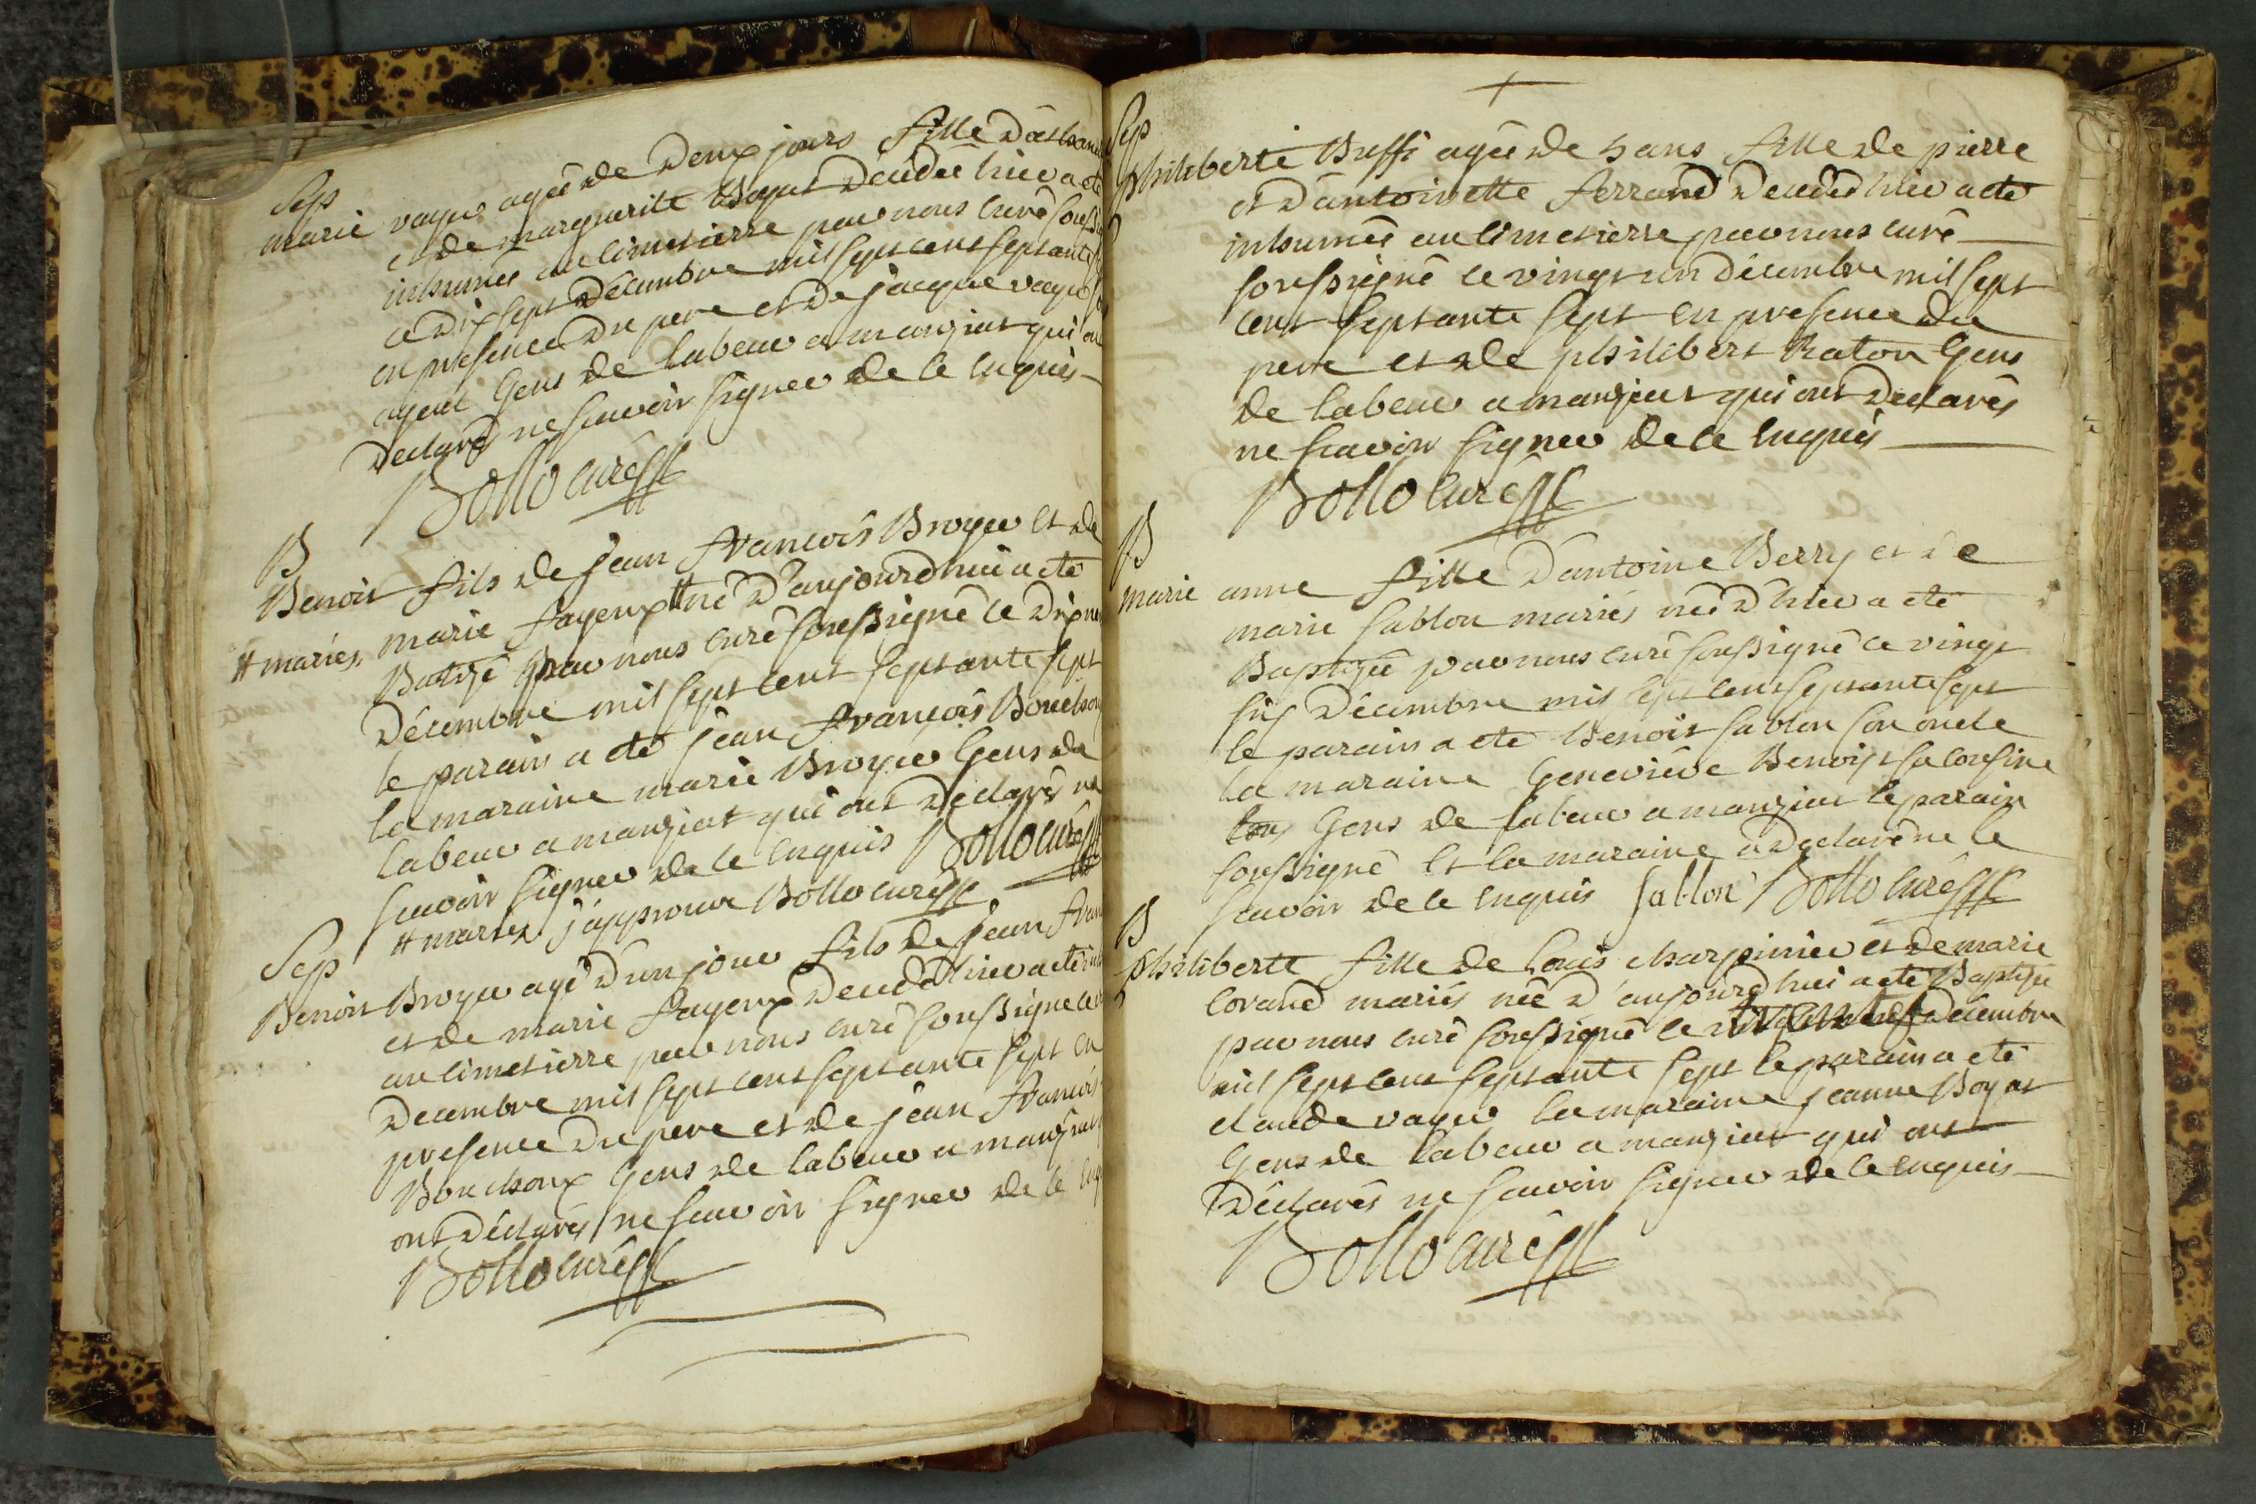 Sep
marie vayer agée de deux jours fille d'athanase
et de marguerite Boyat décédée hier a eté
inhumée au cimetierre par nous curé soussigné
ce dix sept décembre mil sept cent septante sept
en presence du pere et de jacque vayer son
ayeul Gens de labeur a manziat qui ont
declarés ne scavoir signer de ce enquis
Bollo curé
B
Benoit fils de jean francois Broyer et de
# mariés. marie fayeux # né d'aujourd'hui a eté
Batizé par nous curé soussigné le dix neuf
décembre mil sept cent septante sept
le parain a eté jean francois Bouchoux
la maraine marie Broyer Gens de
labeur a manziat qui ont declarés ne
scavoir signer de ce enquis Bollo curé
# mariés j'approuve Bollo curé
Sep
Benoit Broyer agé d'un jour fils de jean francois
et de marie fayeux decedé hier a eté inhumé
au cimetierre par nous curé soussigné ce
decembre mil sept cent septante sept en
presence du pere et de jean francois
Bouchoux Gens de labeur a manziat
ont déclarés ne scavoir signer de ce enquis
Bollo curé
Sep
philiberte Buffi agée de 5 ans fille de pierre
et d'antoinette ferrand decedée hier a eté
inhumée au cimetierre par nous curé
soussigné ce vingt un décembre mil sept
cent septante sept en presence du
pere et de philibert Raton Gens
de labeur a manziat qui ont declarés
ne scavoir signer de ce enquis
Bollo curé
B
marie anne fille d'antoine Berry et de
marie sablon mariés née d'hier a eté
Baptizée par nous curé soussigné ce vingt
six décembre mil sept cent septante sept
le parain a eté Benoit sablon son oncle
la maraine Geneviève Benoist sa cousine
tous Gens de labeur a manziat le parain
soussigné et la maraine a declaré ne le
scavoir de ce enquis Sablon Bollo curé
B
philiberte fille de Louis charpinier et de marie
lorand mariés née d'aujourd'hui a eté Baptizée
par nous curé soussigné ce décembre
mil sept cent septante sept le parain a eté
claude vayer la maraine jeanne Boyat
Gens de labeur a manziat qui ont
déclarés ne scavoir signer de ce enquis
Bollo curé